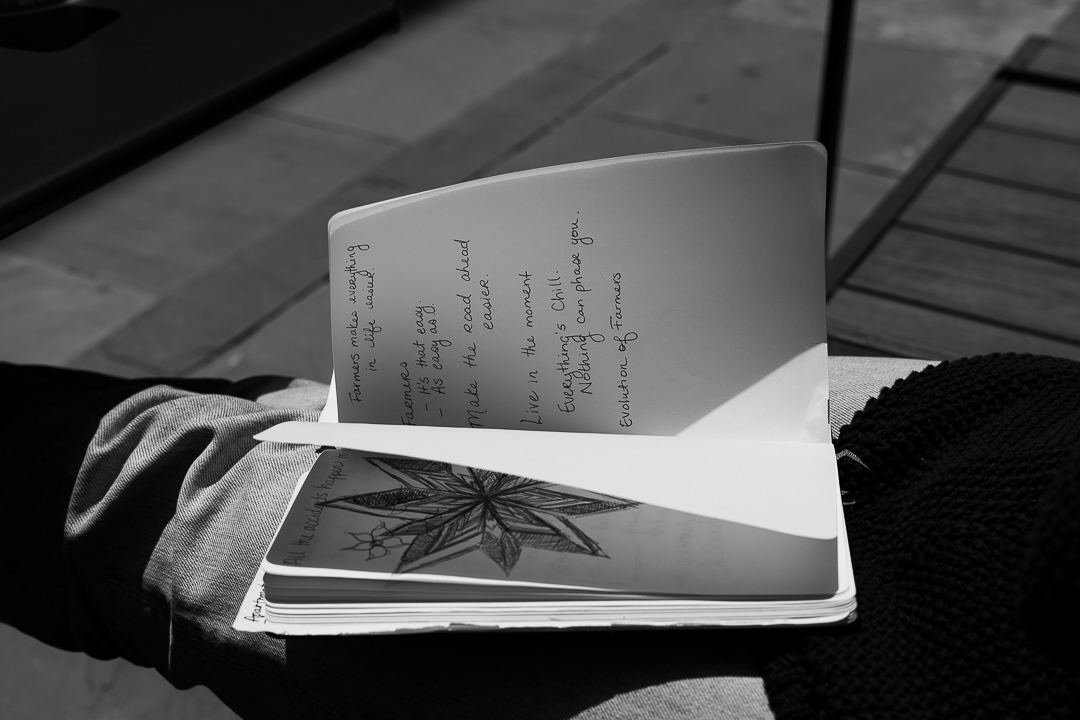 Farmers makes everything
in life easier.
Farmers
- It's that easy.
- As easy as!
Make the road ahead
easier.
Live in the moment
Everything's Chill.
Nothing can phase you.
Evolution of Farmers
All the accidents happen